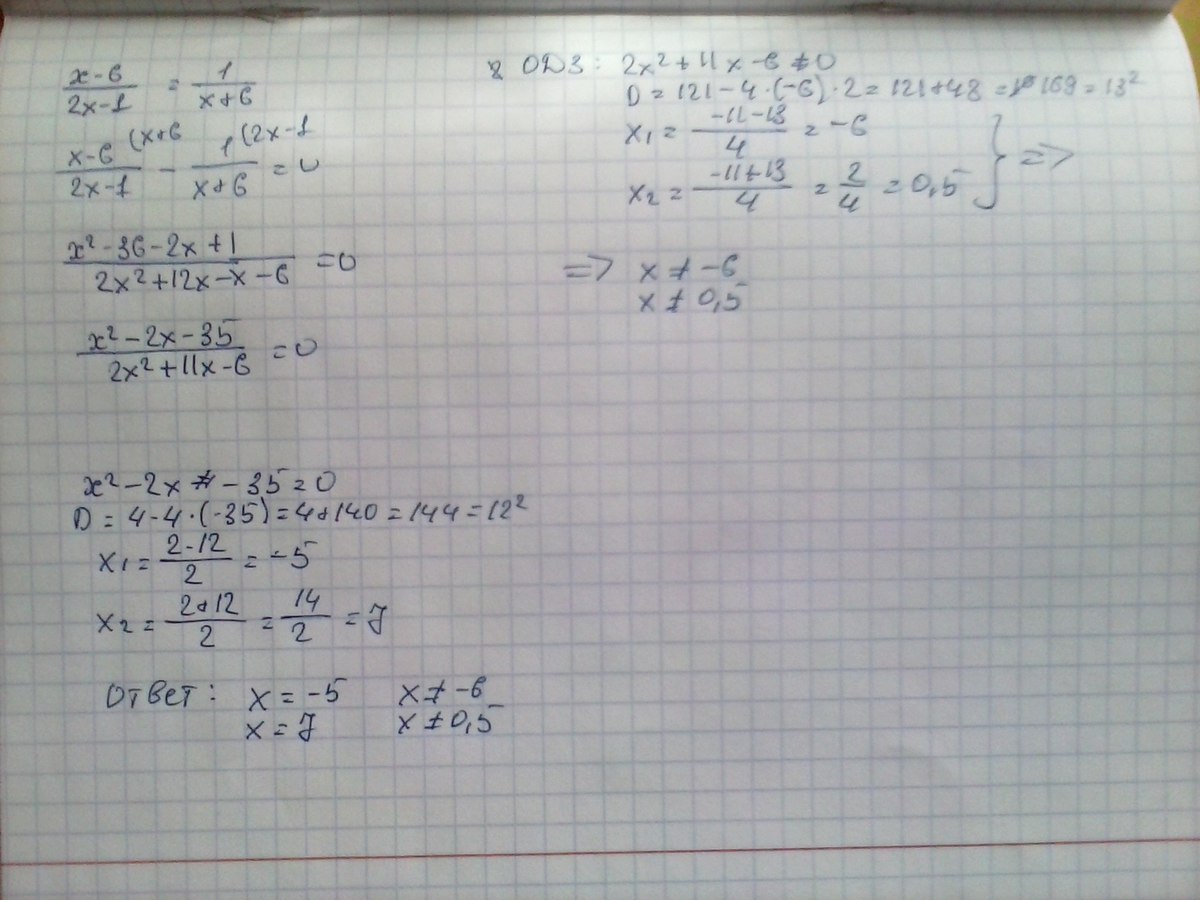 x-6/2x-1 = 1/x+6
x-6 (x+6/2x-1 - 1 (2x-1/x+6 = 0
x²-36-2x+1/2x²+12x-x-6 = 0
x²-2x-35/2x²+11x-6 = 0
x²-2x-35=0
D = 4-4·(-35)=4+140=144=12²
x1 = 2-12/2 = -5
x2 = 2+12/2 = 14/2 = 7
Ответ: x = -5 x ≠ -6
x = 7 x ≠ 0,5
ОДЗ: 2x²+11x-6≠0
D = 121-4·(-6)·2=121+48=169=13²
x1 = -11-13/4 = -6
x2 = -11+13/4 = 2/4 = 0,5 } =>
=> x ≠ -6
x ≠ 0,5